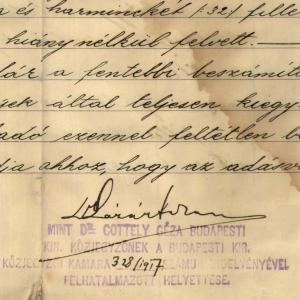 és harminckét (32) fillé
hiány nélkül felvett.
a fentebbi beszámítá
ek által teljesen kiegy
adó ezennel feltétlen b
ja ahhoz, hogy az adásv
MINT DR COTTELY GÉZA BUDAPESTI
KIR. KÖZJEGYZŐNEK A BUDAPESTI KIR.
KÖZJEGYZŐI KAMARA 328/1917 SZÁMU ENGEDÉLYÉVEL
FELHATALMAZOTT HELYETTESE.